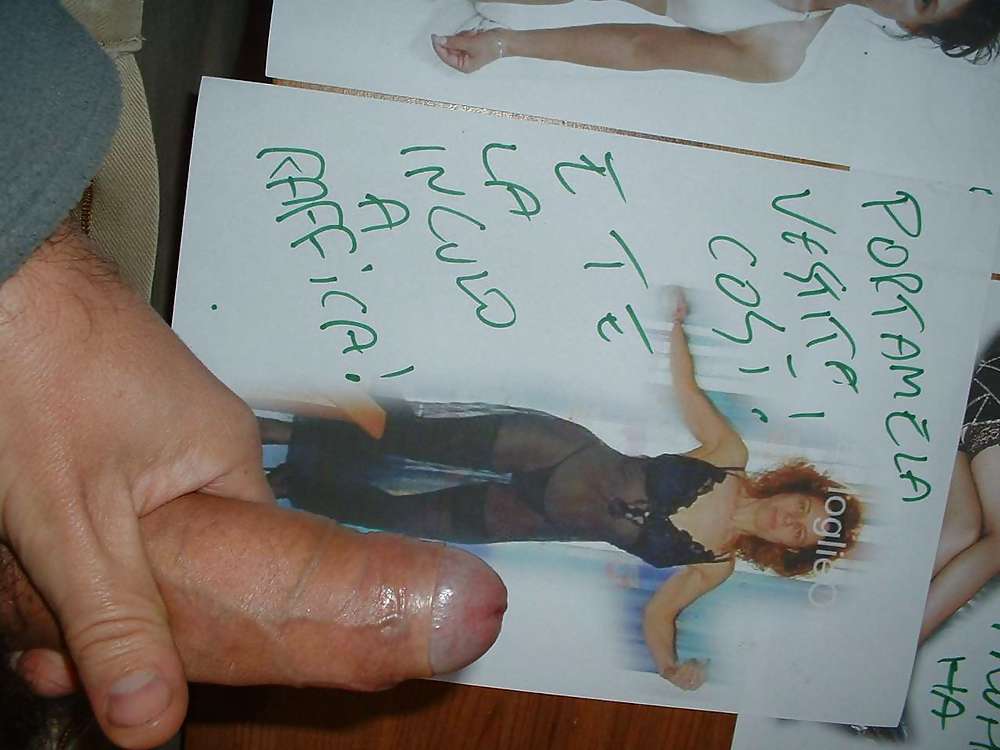 PORTAMELA
VESTITA
COSI,
E TE
LA
INCULO
A
RAFFICA!
oglie.b
HA